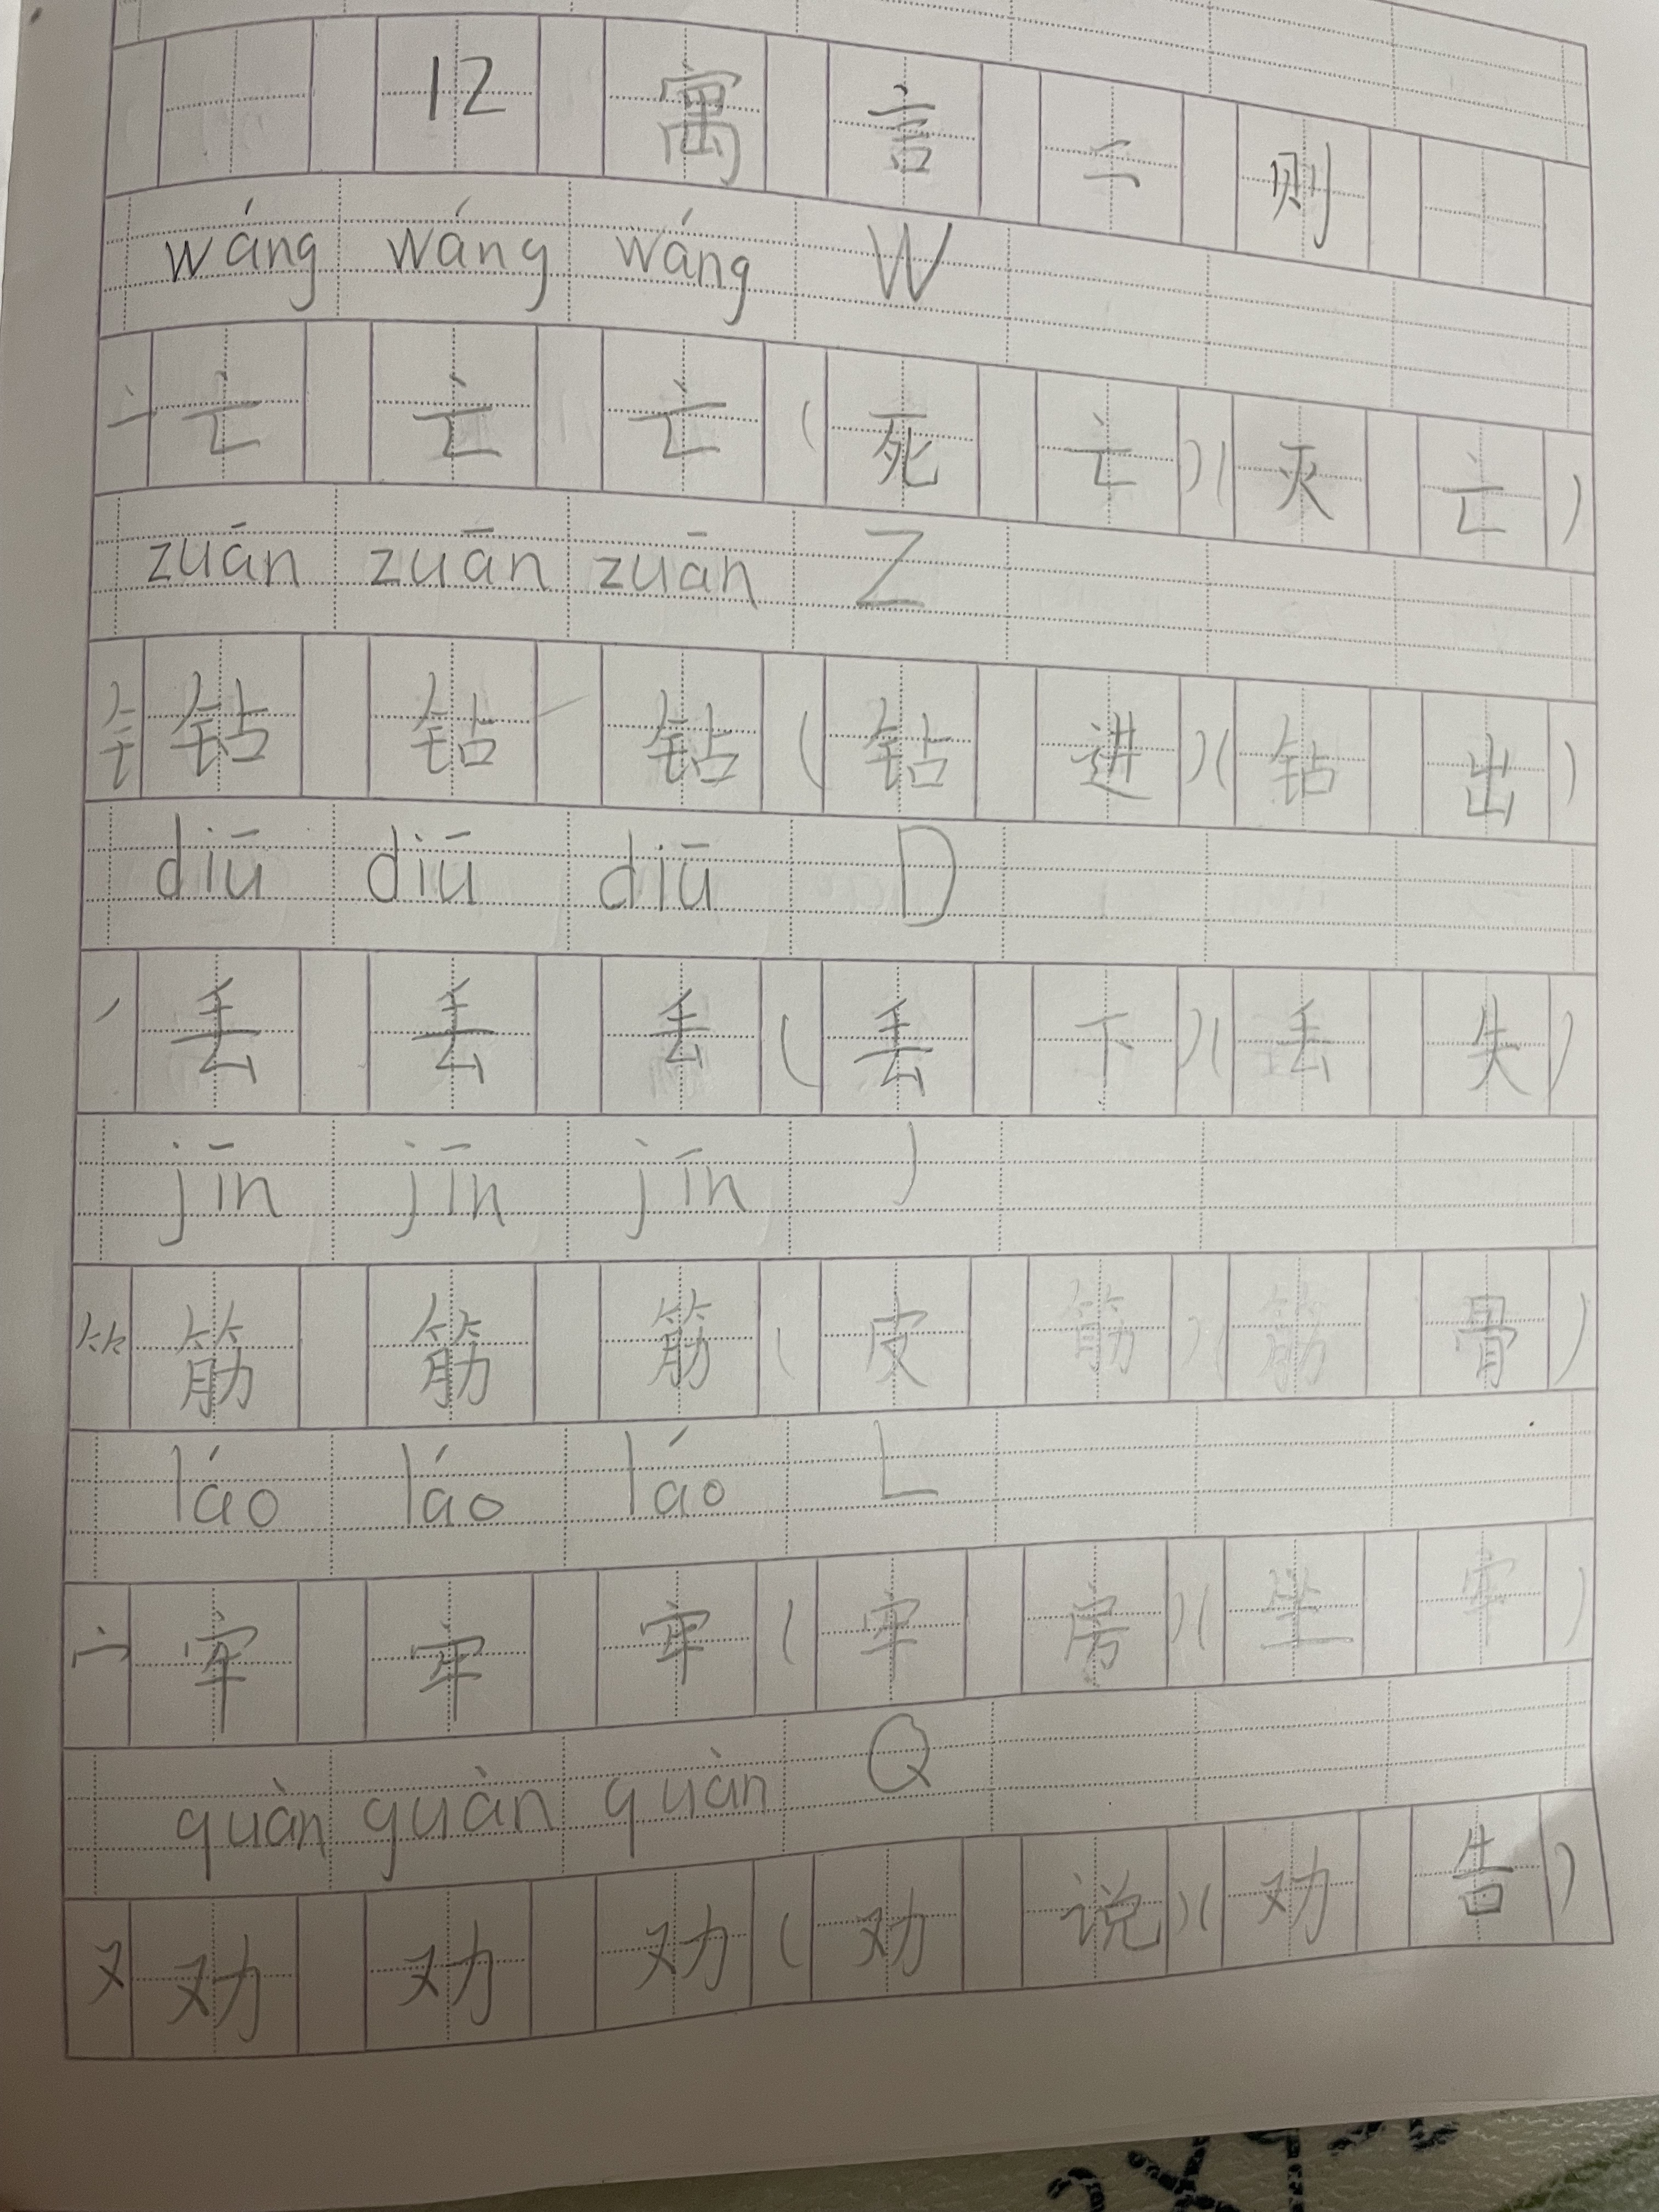 12 寓言二则
wáng wáng wáng W
亠 亡 亡 亡 (死亡)(灭亡)
zuān zuān zuān Z
钅 钻 钻 钻 (钻进)(钻出)
diū diū diū D
丿 丢 丢 丢 (丢下)(丢失)
jīn jīn jīn J
⺮ 筋 筋 筋 (皮筋)(筋骨)
láo láo láo L
宀 牢 牢 牢 (牢房)(坐牢)
quàn quàn quàn Q
又 劝 劝 劝 (劝说)(劝告)